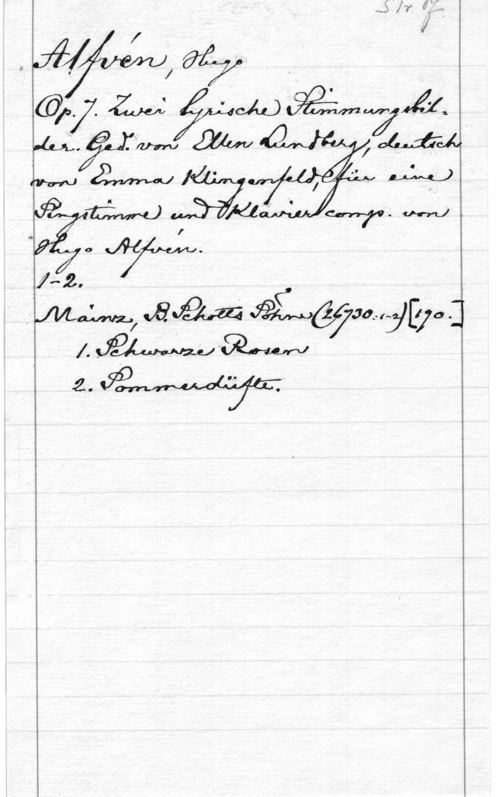 Alfvén, Hugo
Op. 7. Zwei lyrische Stimmungsbil-
der. Ged. von Ellen Lundberg, deutsch
von Emma Klingenfeld, für eine
Singstimme und Klavier comp. von
Hugo Alfvén.
1-2.
Mainz, B. Schotts Söhne (26730.:1-2) [190.]
1. Schwarze Rosen
2. Sommerdüfte.